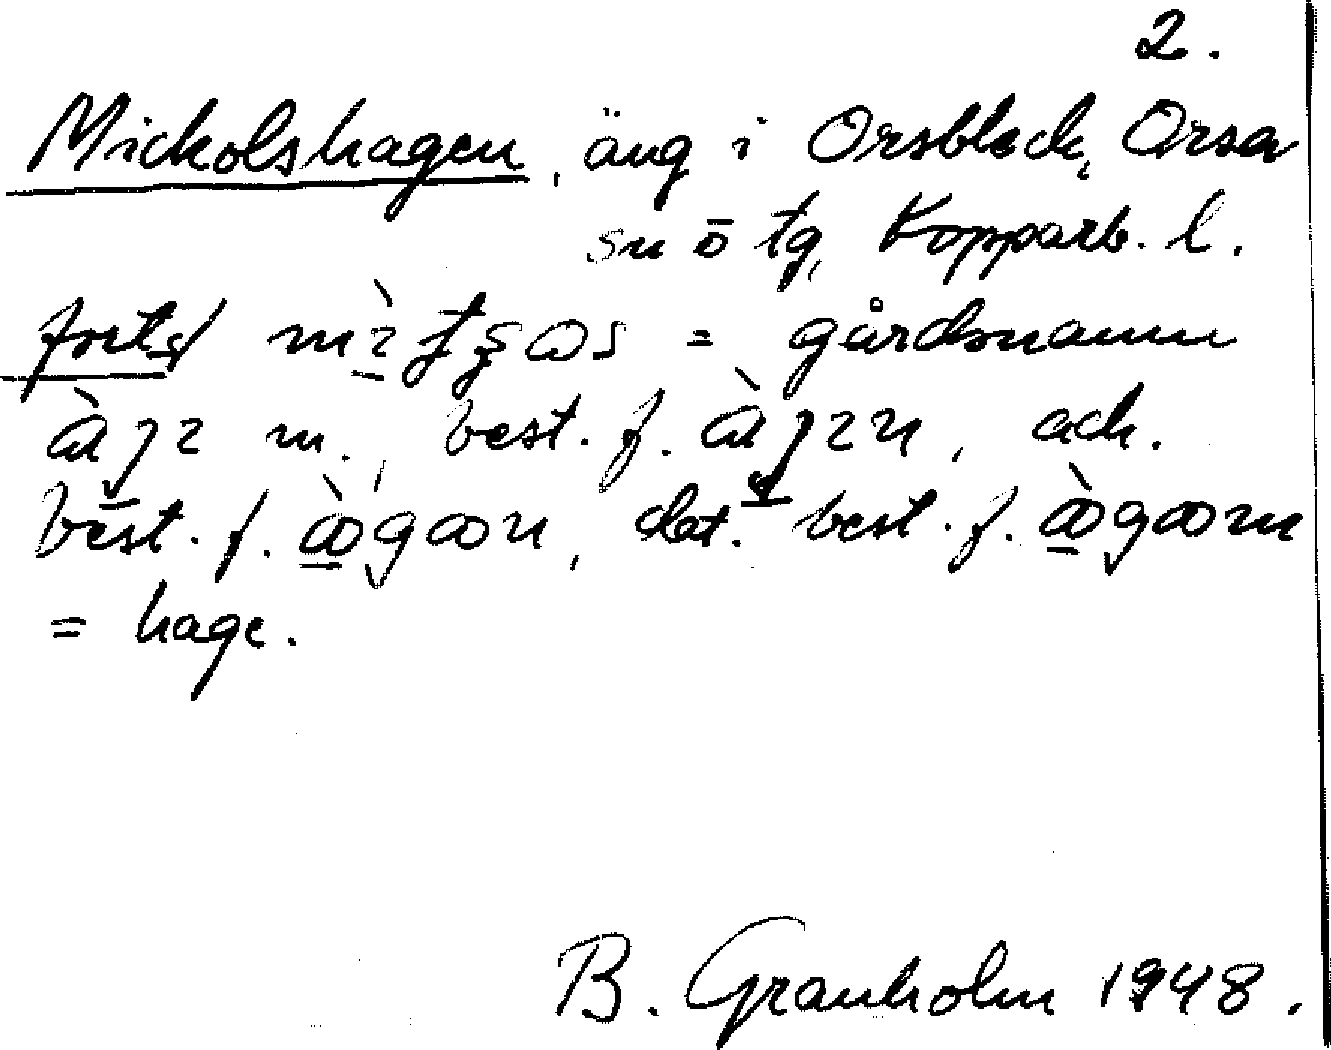 2.
Mickolshagen, äng i Orsbleck, Orsa
sn o tg, Kopparb. l.
forts = gårdsnamn
m., best. f. , ack.
best. f. , dat. best. f.
= hage.
B. Granholm 1948.